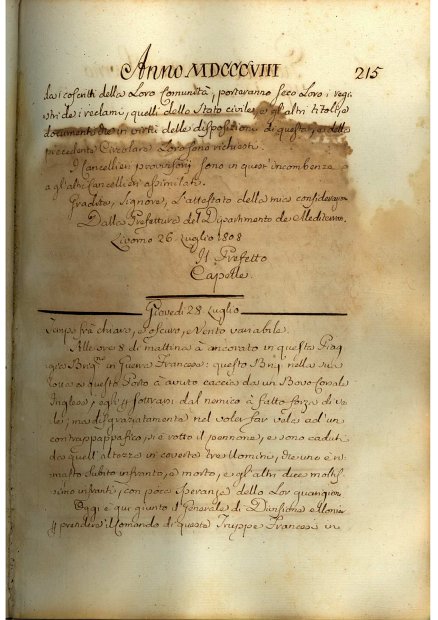 Anno MDCCCVIII 215
da i coscritti della Loro Comunità, porteranno seco Loro i regi
stri de i reclami, quelli dello Stato civile, e gl'altri titoli, e
documenti che in virtù delle disposizioni di questa, e della
precedente Circolare Loro sono richiesti.
I Cancellieri provvisorj sono in quest'incombenza
a gl'altri Cancellieri assimilati.
Gradite, Signore, L'attestato della mia considerazion
Dalla Prefettura del Dipartimento de Mediterran.
Livorno 26 Luglio 1808
Il Prefetto
Capelle.
Giovedi 28. Luglio
Temp: frà chiaro, e oscuro, e Vento variabile.
Alle ore 8 di mattina à ancorato in questa Piag
gia Brigh in Guerra Francese: questo Brig nella sua
à questo Porto à avuto caccia da un Bovo Corsale
Inglese, egli sottrarsi dal nemico à fatto forza di ve
le; ma disgraziatamente nel voler far vale ad un
contrappappafico, si è rotto il pennone, e sono caduti
da quell'altezza in coverta tre Uomini, che uno è ri
masto subito infranto, e morto, e gl'altri due moltis
simo infranti, con poca speranza della Lor guarigion
Oggi è qui giunto il Generale di Divisione
prendere il Comando di queste Truppe Francesi in